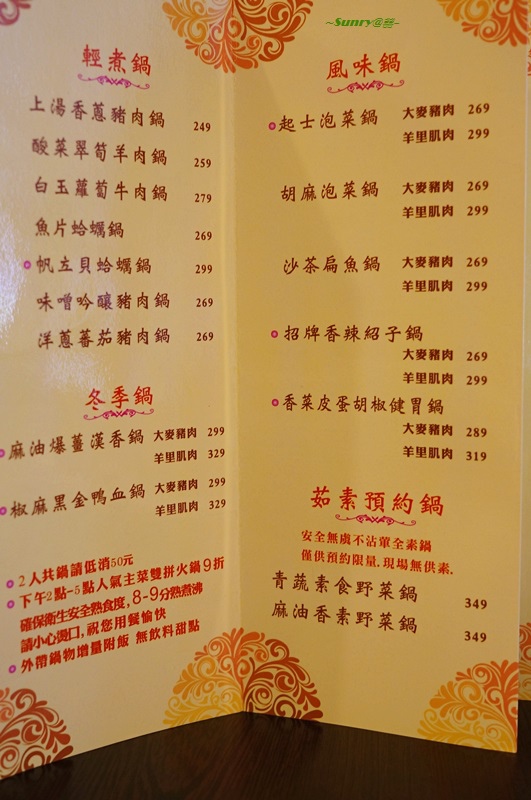 ~Sunry@
輕煮鍋
上湯香蔥豬肉鍋 249
酸菜翠筍羊肉鍋 259
白玉蘿蔔牛肉鍋 279
魚片蛤蠣鍋 269
帆立貝蛤蠣鍋 299
味噌吟釀豬肉鍋 269
洋蔥蕃茄豬肉鍋 269
冬季鍋
麻油爆薑漢香鍋 大麥豬肉 299
羊里肌肉 329
椒麻黑金鴨血鍋 大麥豬肉 299
羊里肌肉 329
2人共鍋請低消50元
下午2點-5點人氣主菜雙拼火鍋9折
確保衛生安全熟食度,8-9分熟煮沸
請小心燙口,祝您用餐愉快
外帶鍋物增量附飯 無飲料甜點
風味鍋
起士泡菜鍋 大麥豬肉 269
羊里肌肉 299
胡麻泡菜鍋 大麥豬肉 269
羊里肌肉 299
沙茶扁魚鍋 大麥豬肉 269
羊里肌肉 299
招牌香辣紹子鍋
大麥豬肉 269
羊里肌肉 299
香菜皮蛋胡椒健胃鍋
大麥豬肉 289
羊里肌肉 319
茹素預約鍋
安全無虞不沾單全素鍋
僅供預約限量.現場無供素.
青蔬素食野菜鍋 349
麻油香素野菜鍋 349